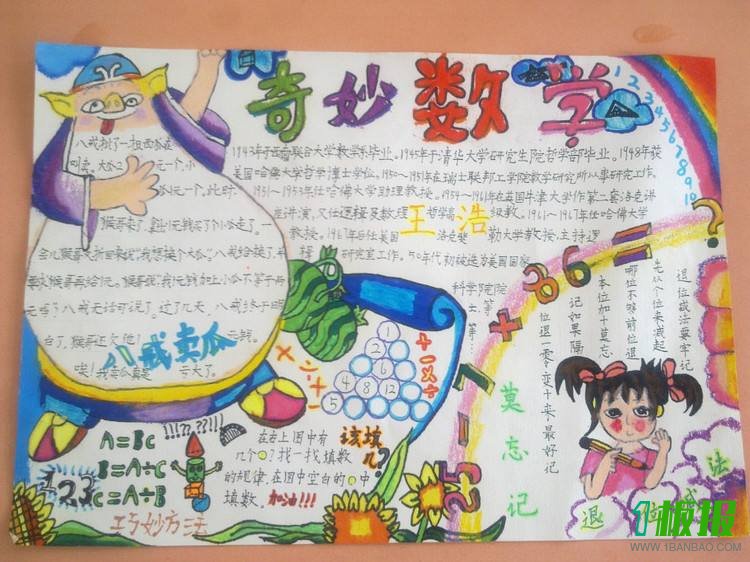 奇妙数学
1 2 3 4 5 6 7 8 9 10
八戒
叫卖。大瓜2元一个,小
瓜1元一个。此时,
猴哥来了,拿出1元钱买了1个小瓜走了。
八戒无话可说了。过了几天,八戒终于明
白了,猴哥还欠他1元钱。
唉!我卖瓜真是亏大了。
八戒卖瓜
1943年于西南联合大学数学系毕业。1945年于清华大学研究生院哲学部毕业。1948年获
美国哈佛大学哲学博士学位。1950~1951年在瑞士联邦工学院数学研究所从事研究工作。
1951~1953年任哈佛大学助理教授。1954~1961年在英国牛津大学作第二套洛克讲
座讲演,又任逻辑及数理哲学高级教。1961~1967年任哈佛大学
教授。1967年后任美国洛克斐勒大学教授,主持逻
辑研究室工作。50年代初被选为美国国家
科学院院
士,等等。
王浩
25-7+86=?
1
2
6
4 8 12
5
+-×÷
退位减法要牢记
先从个位来减起
哪位不够前位退
本位加十莫忘
记如果隔
位退一零变十来,最好记
莫忘记
退位减法
A=BC
B=A÷C
C=A÷B
巧妙方法
123
!!!??,???
在右上图中有
几个○?找一找填数
的规律,在图中空白的○中
填数。加油!!!
该填
几?
1板报
WWW.1BANBAO.COM